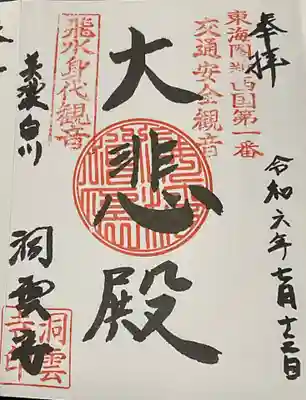 奉拝
令和六年七月十三日
東海圏新西国第一番
交通安全観音
大悲殿
飛水身代観音
美濃白川
洞雲寺
洞雲
寺印